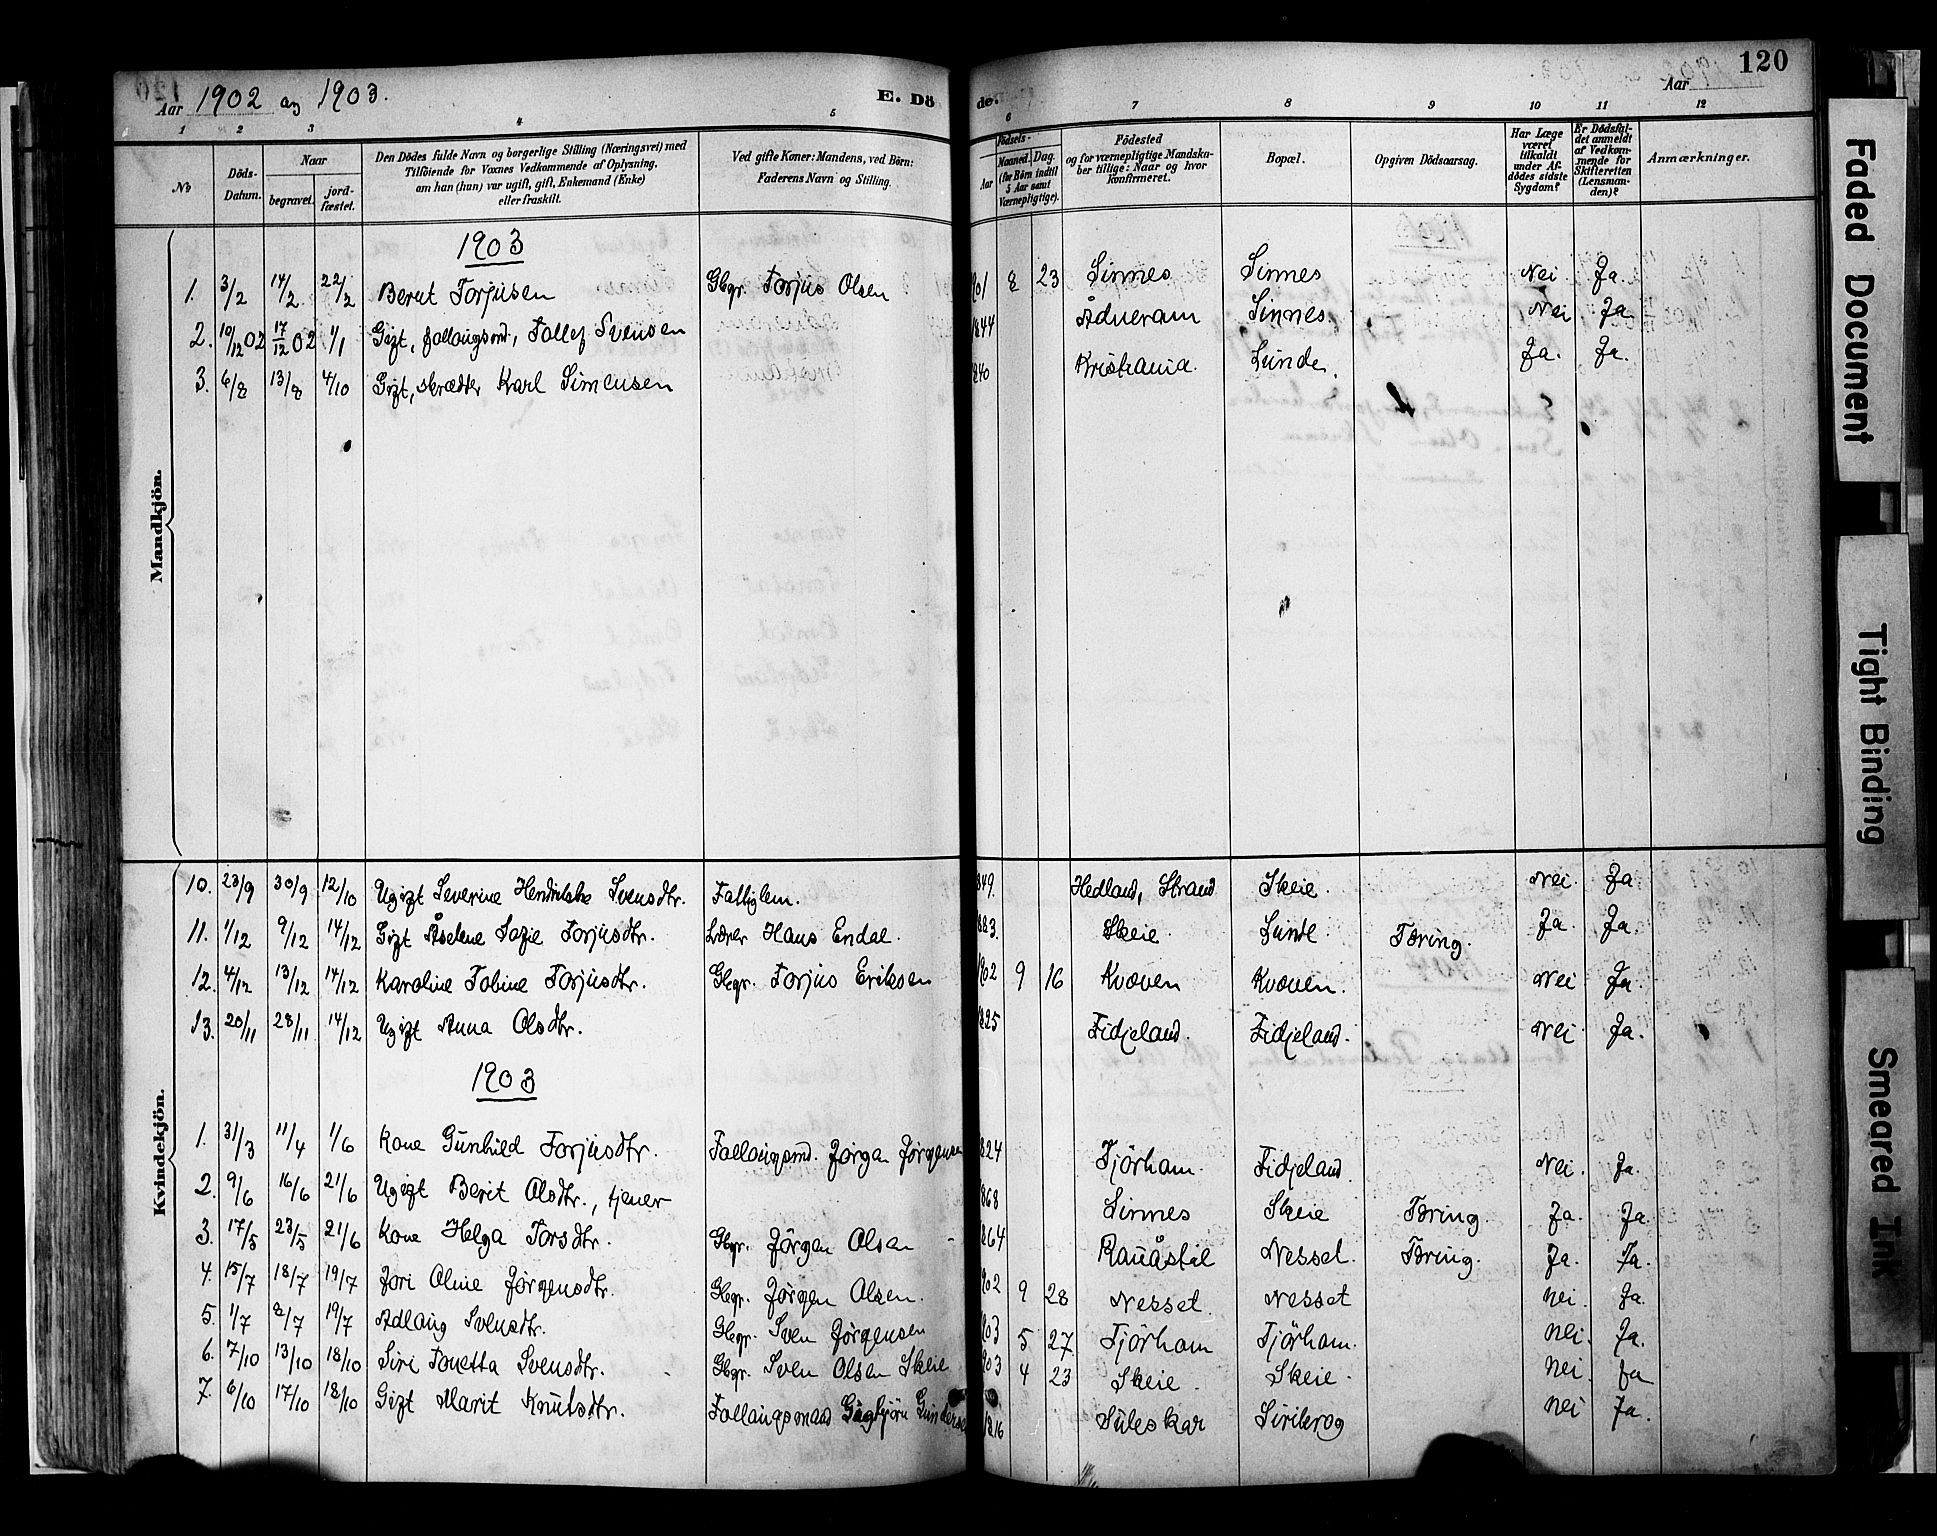 Aar 1902 og 1903.
E. Dö
de.
Aar
120
1 2 3 4 5 6 7 8 9 10 11 12
No
Döds-Datum.
Naar
begravet.
jord-fæstet.
Den Dödes fulde Navn og borgerlige Stilling (Næringsvei) med
Tilföiende for Voxnes Vedkommende af Oplysning,
om han (hun) var ugift, gift, Enkemand (Enke)
eller fraskilt.
Ved gifte Koner: Mandens, ved Börn:
Faderens Navn og Stilling.
Födsels-
Aar
Maaned.
Dag.
(for Börn indtil
5 Aar samt
Værnepligtige).
Födested
og for værnepligtige Mandska-
ber tillige: Naar og hvor
konfirmeret.
Bopæl.
Opgiven Dödsaarsag.
Har Læge
været
tilkaldt
under Af-
dödes sidste
Sygdom?
Er Dödsfal-
det anmeldt
af Vedkom-
mende for
Skifteretten
(Lensman-
den)?
Anmærkninger.
Mandkjön.
1903
1. 3/2 14/2 22/2 Berut Torjusen Gbgr. Torjus Olsen 901 8 23 Sinnes Sinnes Nei Ja.
2. 10/12 02 17/12 02 1/1 Gift, follaugsmd., Tollef Svensen 1844 Ådneram Sinnes. Nei Ja
3. 6/8 13/8 4/10 Gift, skrædter Karl Simensen 840 Kristiania. Lunde. Ja. Ja.
Kvindekjön.
10. 23/9 30/9 12/10 Ugift Severine Hendrikke Svensdtr. Fattiglem. 849. Hedland, Strand Skeie. Nei. Ja
11. 1/12 9/12 14/12 Gift Åselene Sofie Torjusdtr. Lærer Hans Endal. 883. Skeie. Lunde. Tæring. Ja. Ja.
12. 4/12 13/12 14/12 Karoline Tobine Torjusdtr. Gbgr. Torjus Eriksen 1902 9 16 Kvæven Kvæven. Nei Ja.
13. 20/11 28/11 14/12 Ugift Anna Olsdtr. 825 Fidjeland. Fidjeland. Nei Ja.
1903
1. 31/3 11/4 1/6 Kone Gunhild Torjusdtr. Follaugsmd. Jørgen Jørgensen 824 Tjörham. Fidjeland. Nei. Ja.
2. 9/6 16/6 21/6 Ugift Berit Olsdtr., tjener 868 Sinnes Skeie Tæring. Ja. Ja.
3. 17/5 23/5 21/6 Kone Helga Torsdtr. Gbgr. Jørgen Olsen 864 Rauåstöl Nesset. Tæring. Ja. Ja.
4. 15/7 18/7 19/7 Jori Oline Jørgensdtr. Gbgr. Jørgen Olsen. 902 9 28 Nesset. Nesset Nei. Ja.
5. 1/7 8/7 19/7 Adlaug Svensdtr. Gbgr. Sven Jørgensen 903 5 27 Tjörham Tjörham. Nei. Ja.
6. 7/10 13/10 18/10 Siri Tonetta Svensdtr. Gbgr. Sven Olsen Skeie 903 4 23 Skeie. Skeie. Nei Ja
7. 6/10 17/10 18/10 Gift Marit Knutsdtr. Follaugsmand Gundersen 1816 Suleskar Sirikrog Nei Ja.
Faded Document
Tight Binding
Smeared Ink